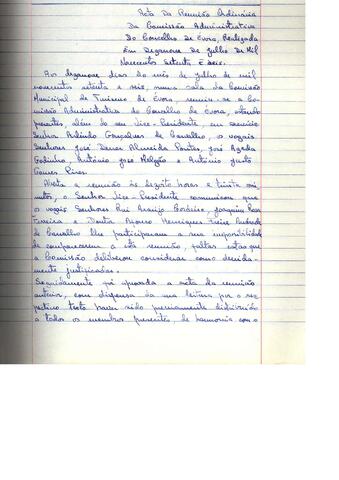 Acta Da Reunião Ordinária
Da Comissão Administrativa
Do Concelho de Évora, Realizada
Em Dezanove De Julho De Mil
Novecentos Setenta E Seis.
Aos dezanove dias do mês de Julho de mil
novecentos setenta e seis, numa sala da Comissão
Municipal de Turismo de Évora, reuniu-se a Co-
missão Administrativa do Concelho de Évora, estando
presentes, além do seu Vice-Presidente em exercício
Senhor Arlindo Gonçalves de Carvalho, os vogais
Senhores José Daniel Almeida Pontes, José Azeda
Godinho, António José Melgão e António Justo
Gomes Pires.
Aberta a reunião às dezoito horas e trinta mi-
nutos, o Senhor Vice-Presidente comunicou que
os vogais Senhores Rui Araújo Godinho, Joaquim Rosa
Teixeira e Doutor Afonso Henriques Freire Andrade
de Carvalho lhe participaram a sua impossibilidade
de comparecerem a esta reunião, faltas estas que
a Comissão deliberou considerar como devida-
mente justificadas.
Seguidamente foi aprovada a acta da reunião
anterior, com dispensa da sua leitura por o res-
pectivo texto haver sido previamente distribuído
a todos os membros presentes, de harmonia com o